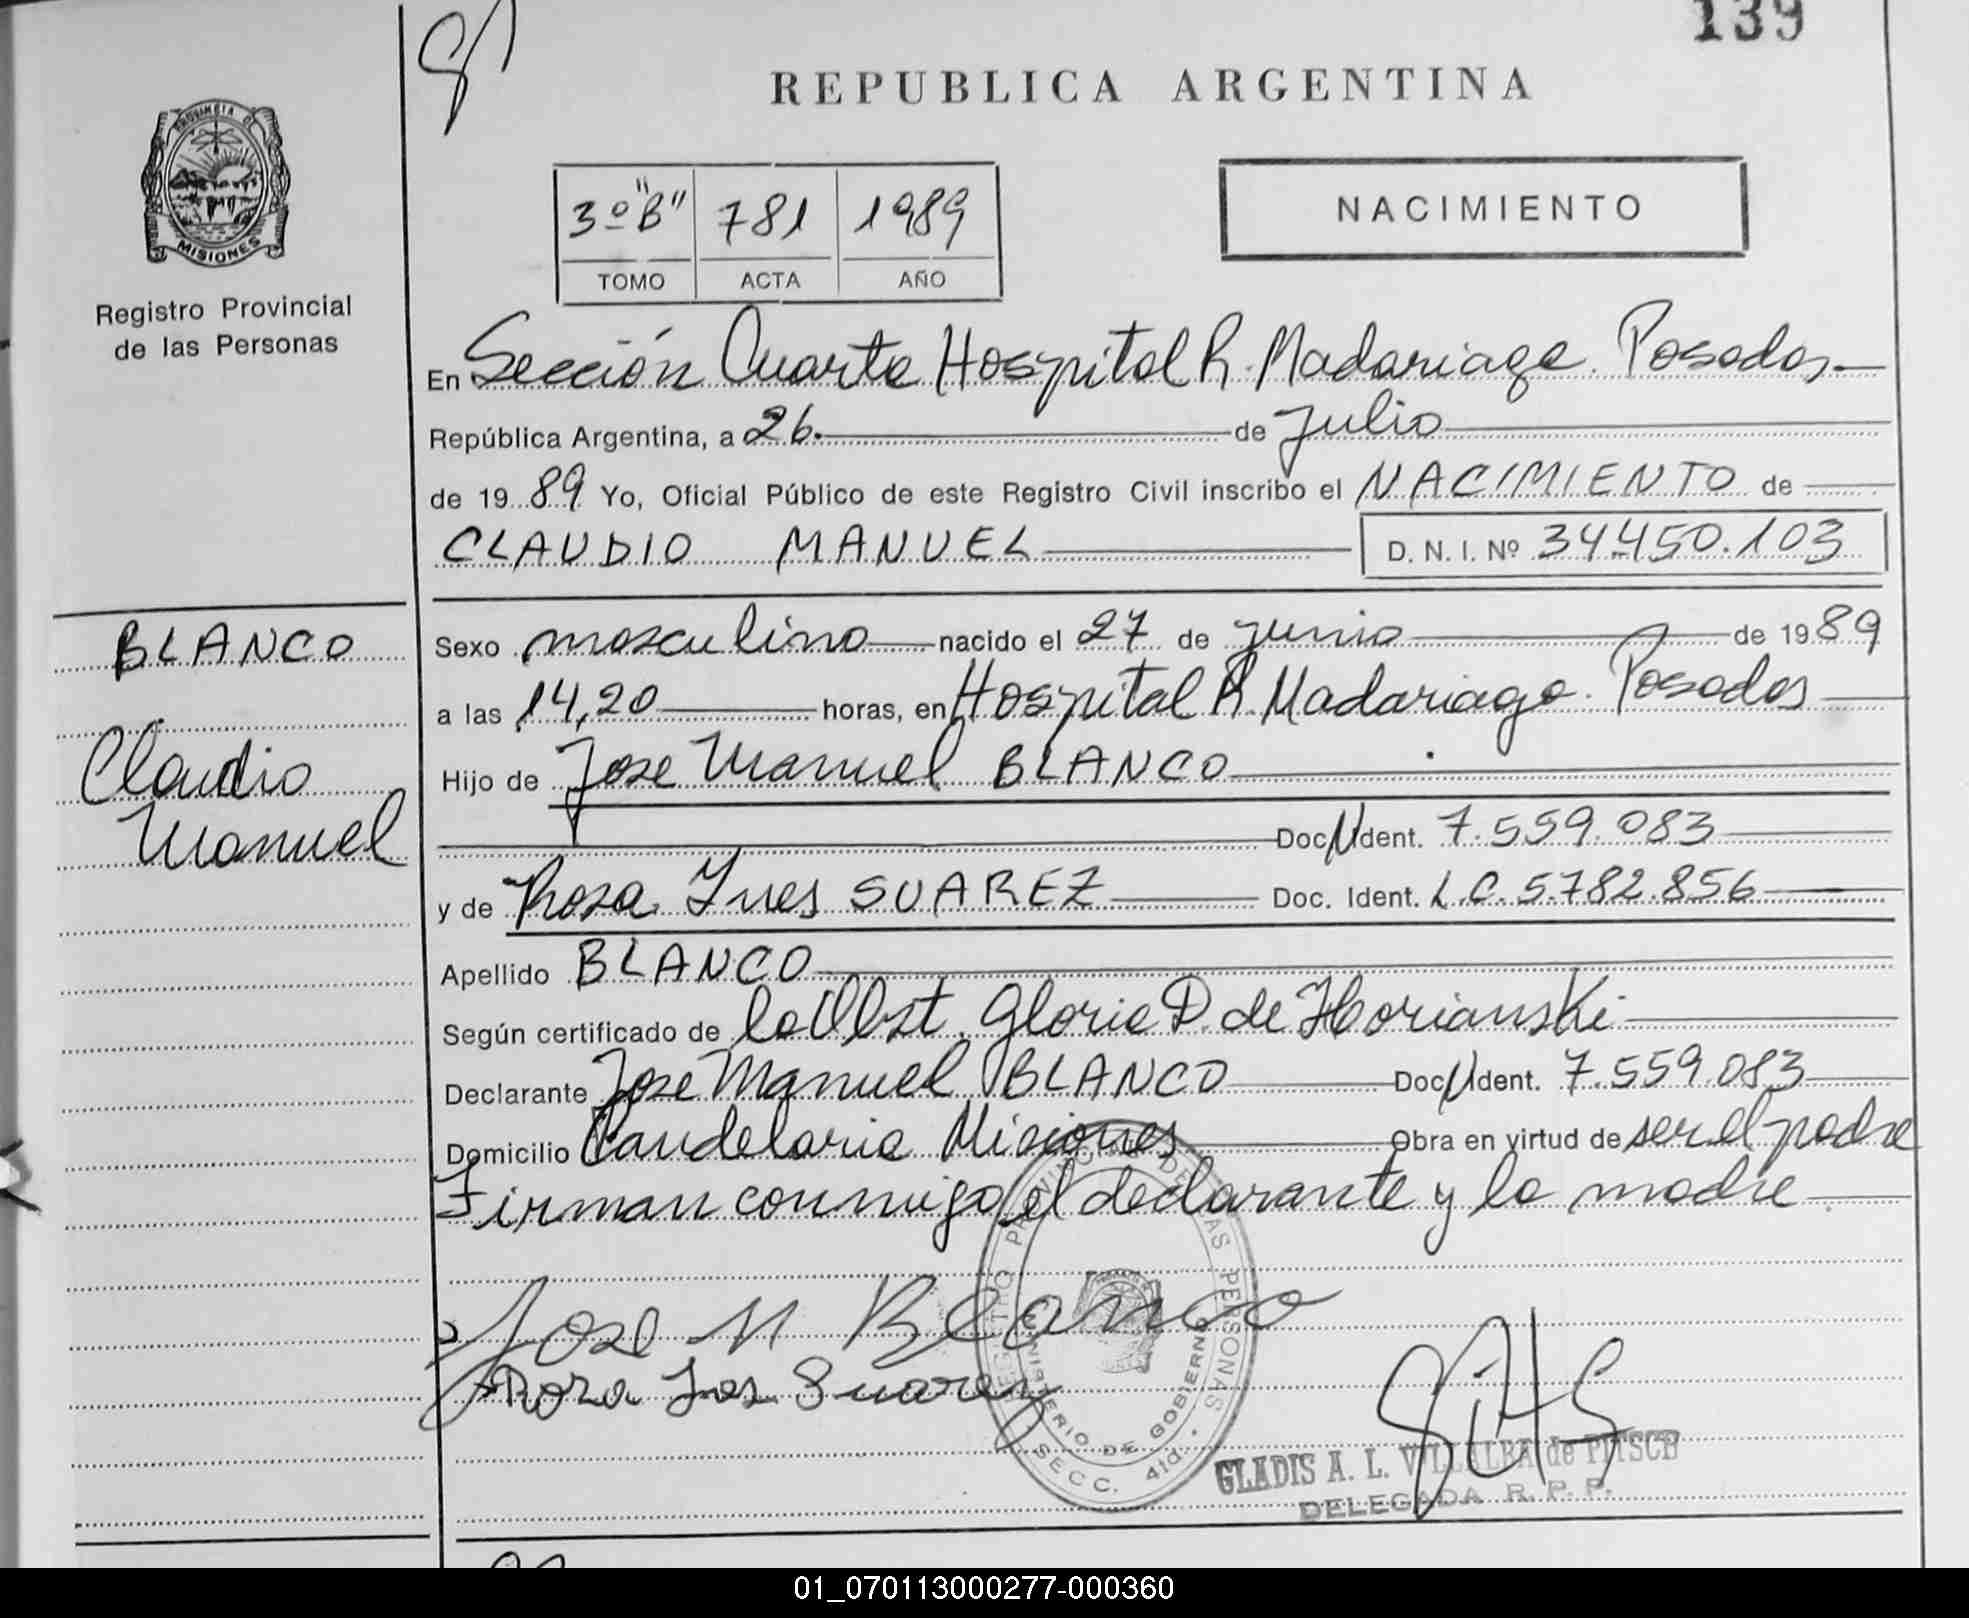 139
REPUBLICA ARGENTINA
PROVINCIA DE
MISIONES
Registro Provincial
de las Personas
3º "B" 781 1989
TOMO ACTA AÑO
NACIMIENTO
En Sección Cuarta Hospital R. Madariaga. Posadas.
República Argentina, a 26. de Julio
de 19 89 Yo, Oficial Público de este Registro Civil inscribo el NACIMIENTO de
CLAUDIO MANUEL D. N. I. Nº 34.450.103
BLANCO
Claudio
Manuel
Sexo masculino nacido el 27 de junio de 19 89
a las 14,20 horas, en Hospital R. Madariaga. Posadas
Hijo de Jose Manuel BLANCO
Doc. Ident. 7.559.083
y de Rosa Ines SUAREZ Doc. Ident. L.C. 5.782.856
Apellido BLANCO
Según certificado de la Obst. Gloria D. de Horianski
Declarante Jose Manuel BLANCO Doc. Ident. 7.559.083
Domicilio Candelaria Misiones Obra en virtud de ser el padre
Firman conmigo el declarante y la madre
Jose M Blanco
Rosa Ines Suarez
REGISTRO PROVINCIAL DE LAS PERSONAS
MINISTERIO DE GOBIERNO
SECC. 4ta.
GLADIS A. L. VILLALBA de PITSCH
DELEGADA R. P. P.
01_070113000277-000360